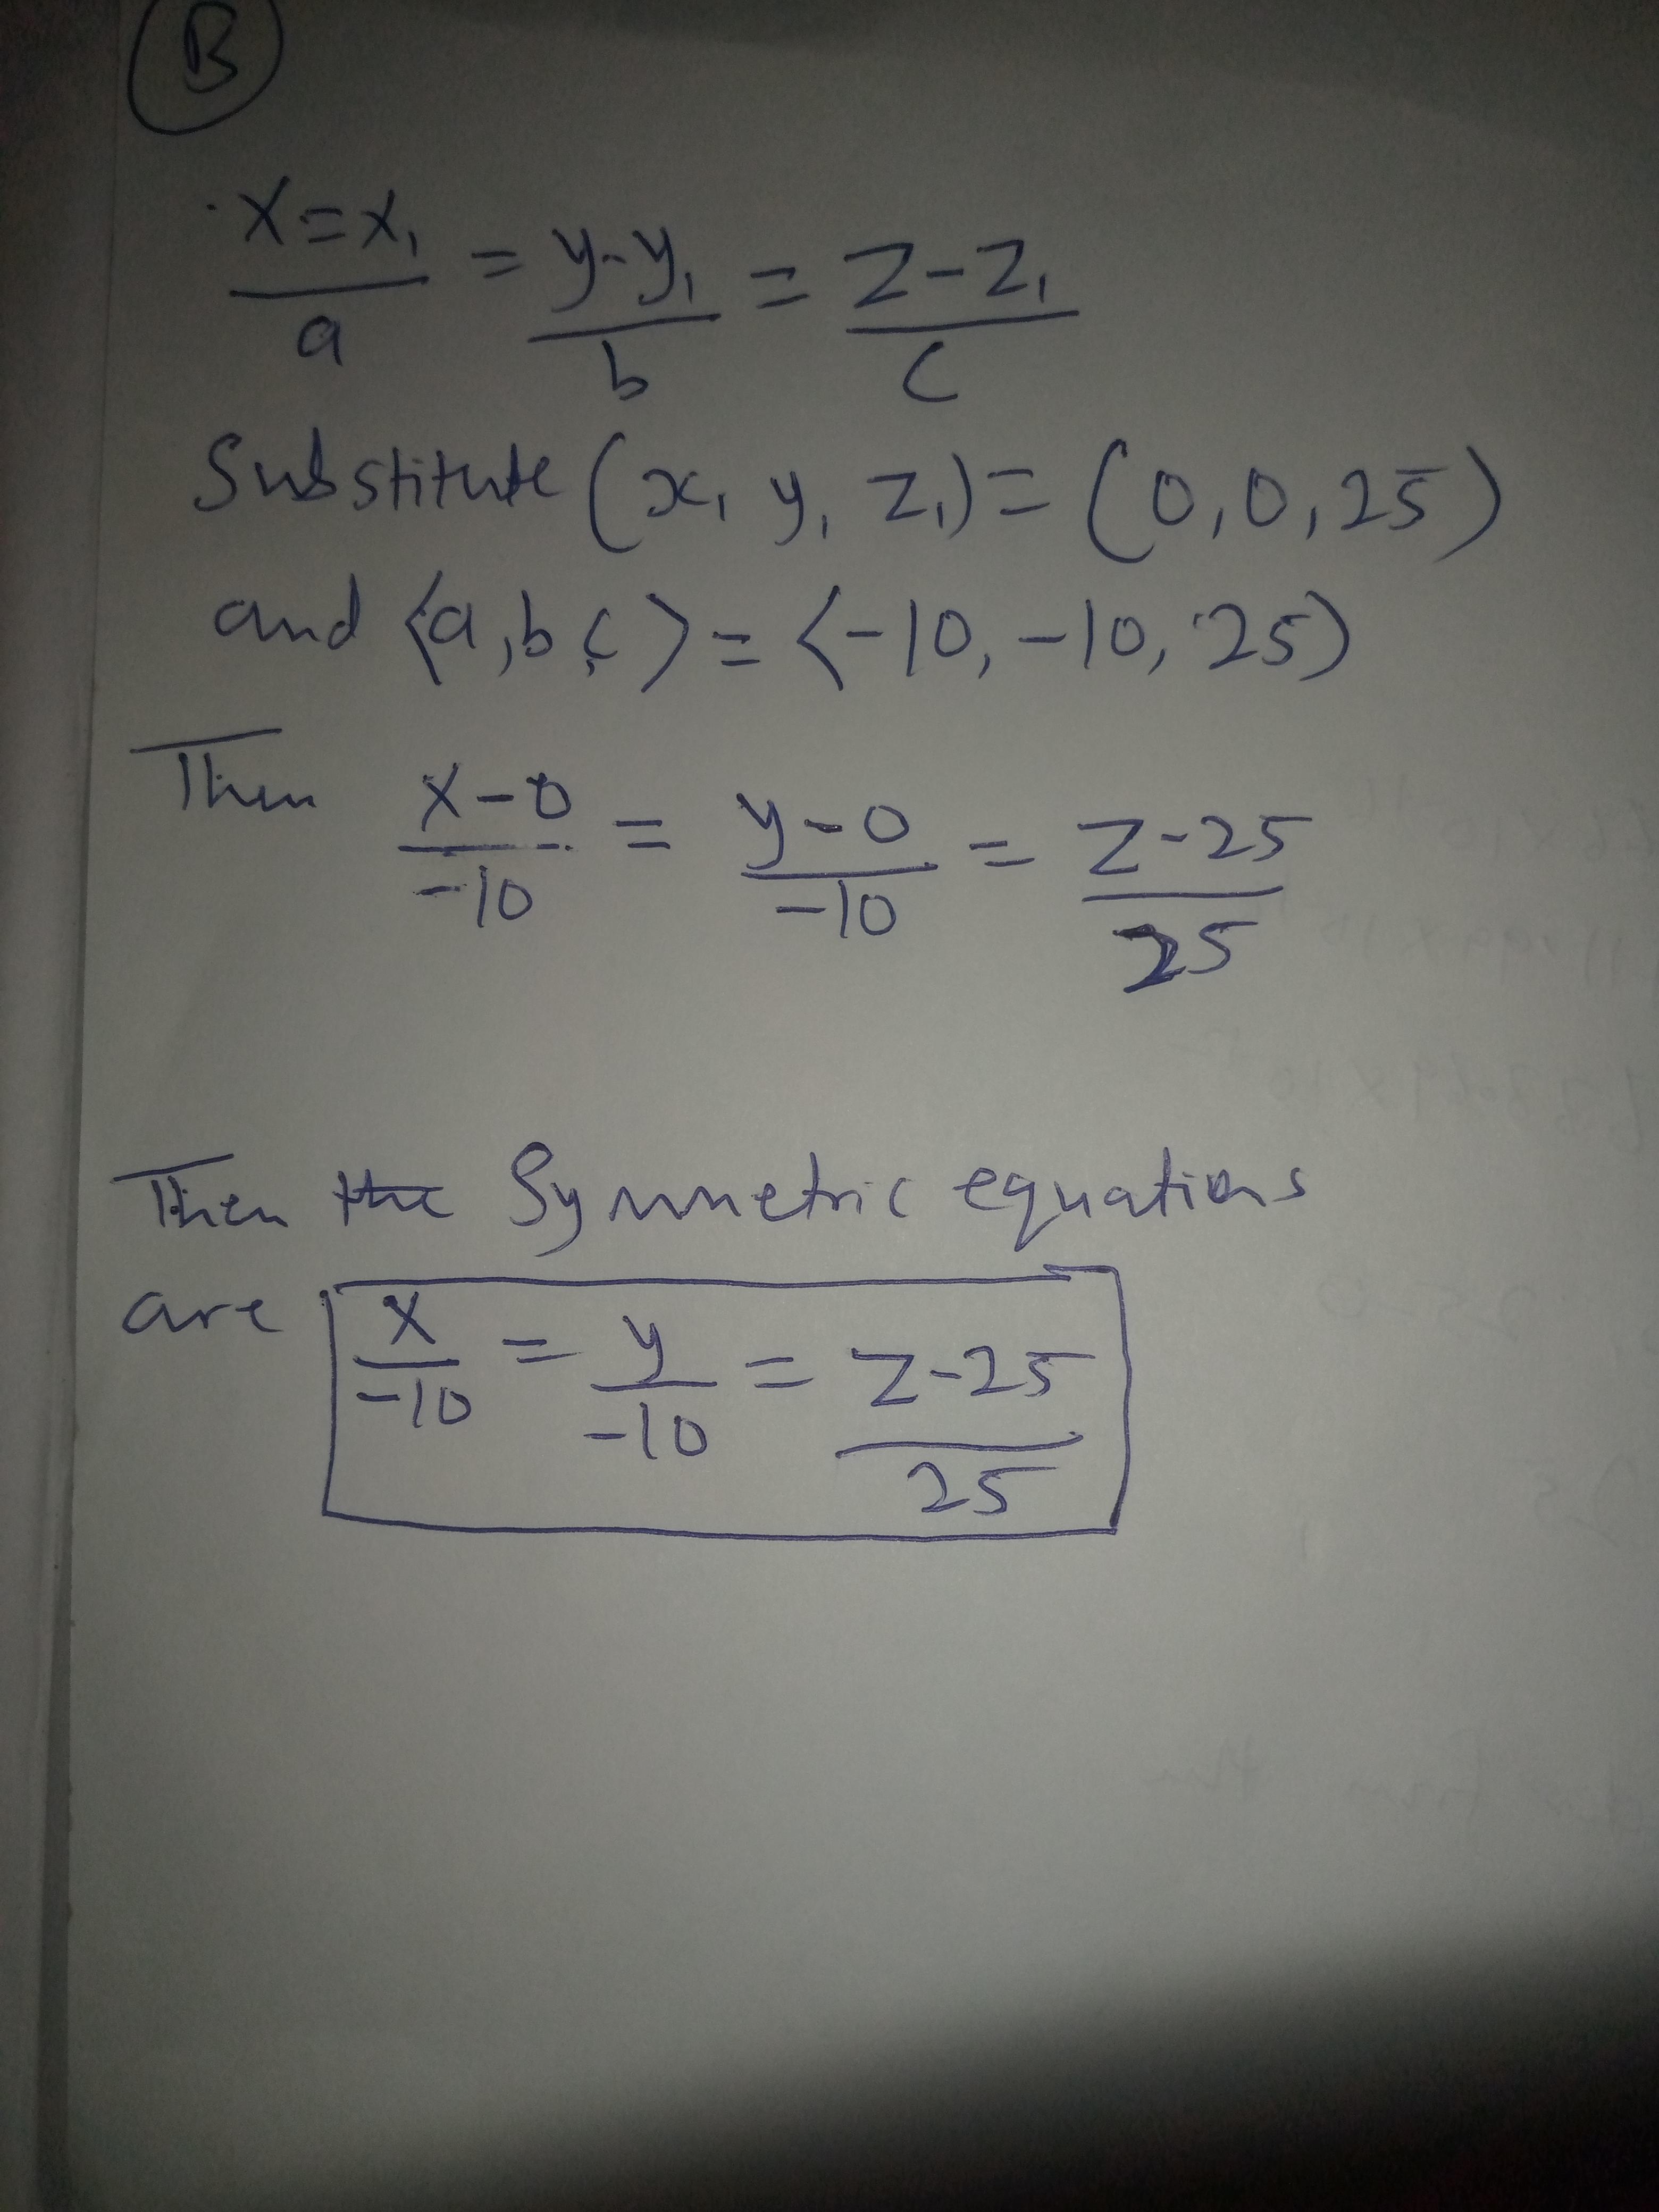 B
x=x₁/a = y-y₁/b = z-z₁/c
Substitute (x₁ y₁ z₁)= (0,0,25)
and ⟨a,b,c⟩=⟨-10,-10,25)
Then x-0/-10 = y-0/-10 = z-25/25
Then the Symmetric equations
are x/-10 = y/-10 = z-25/25